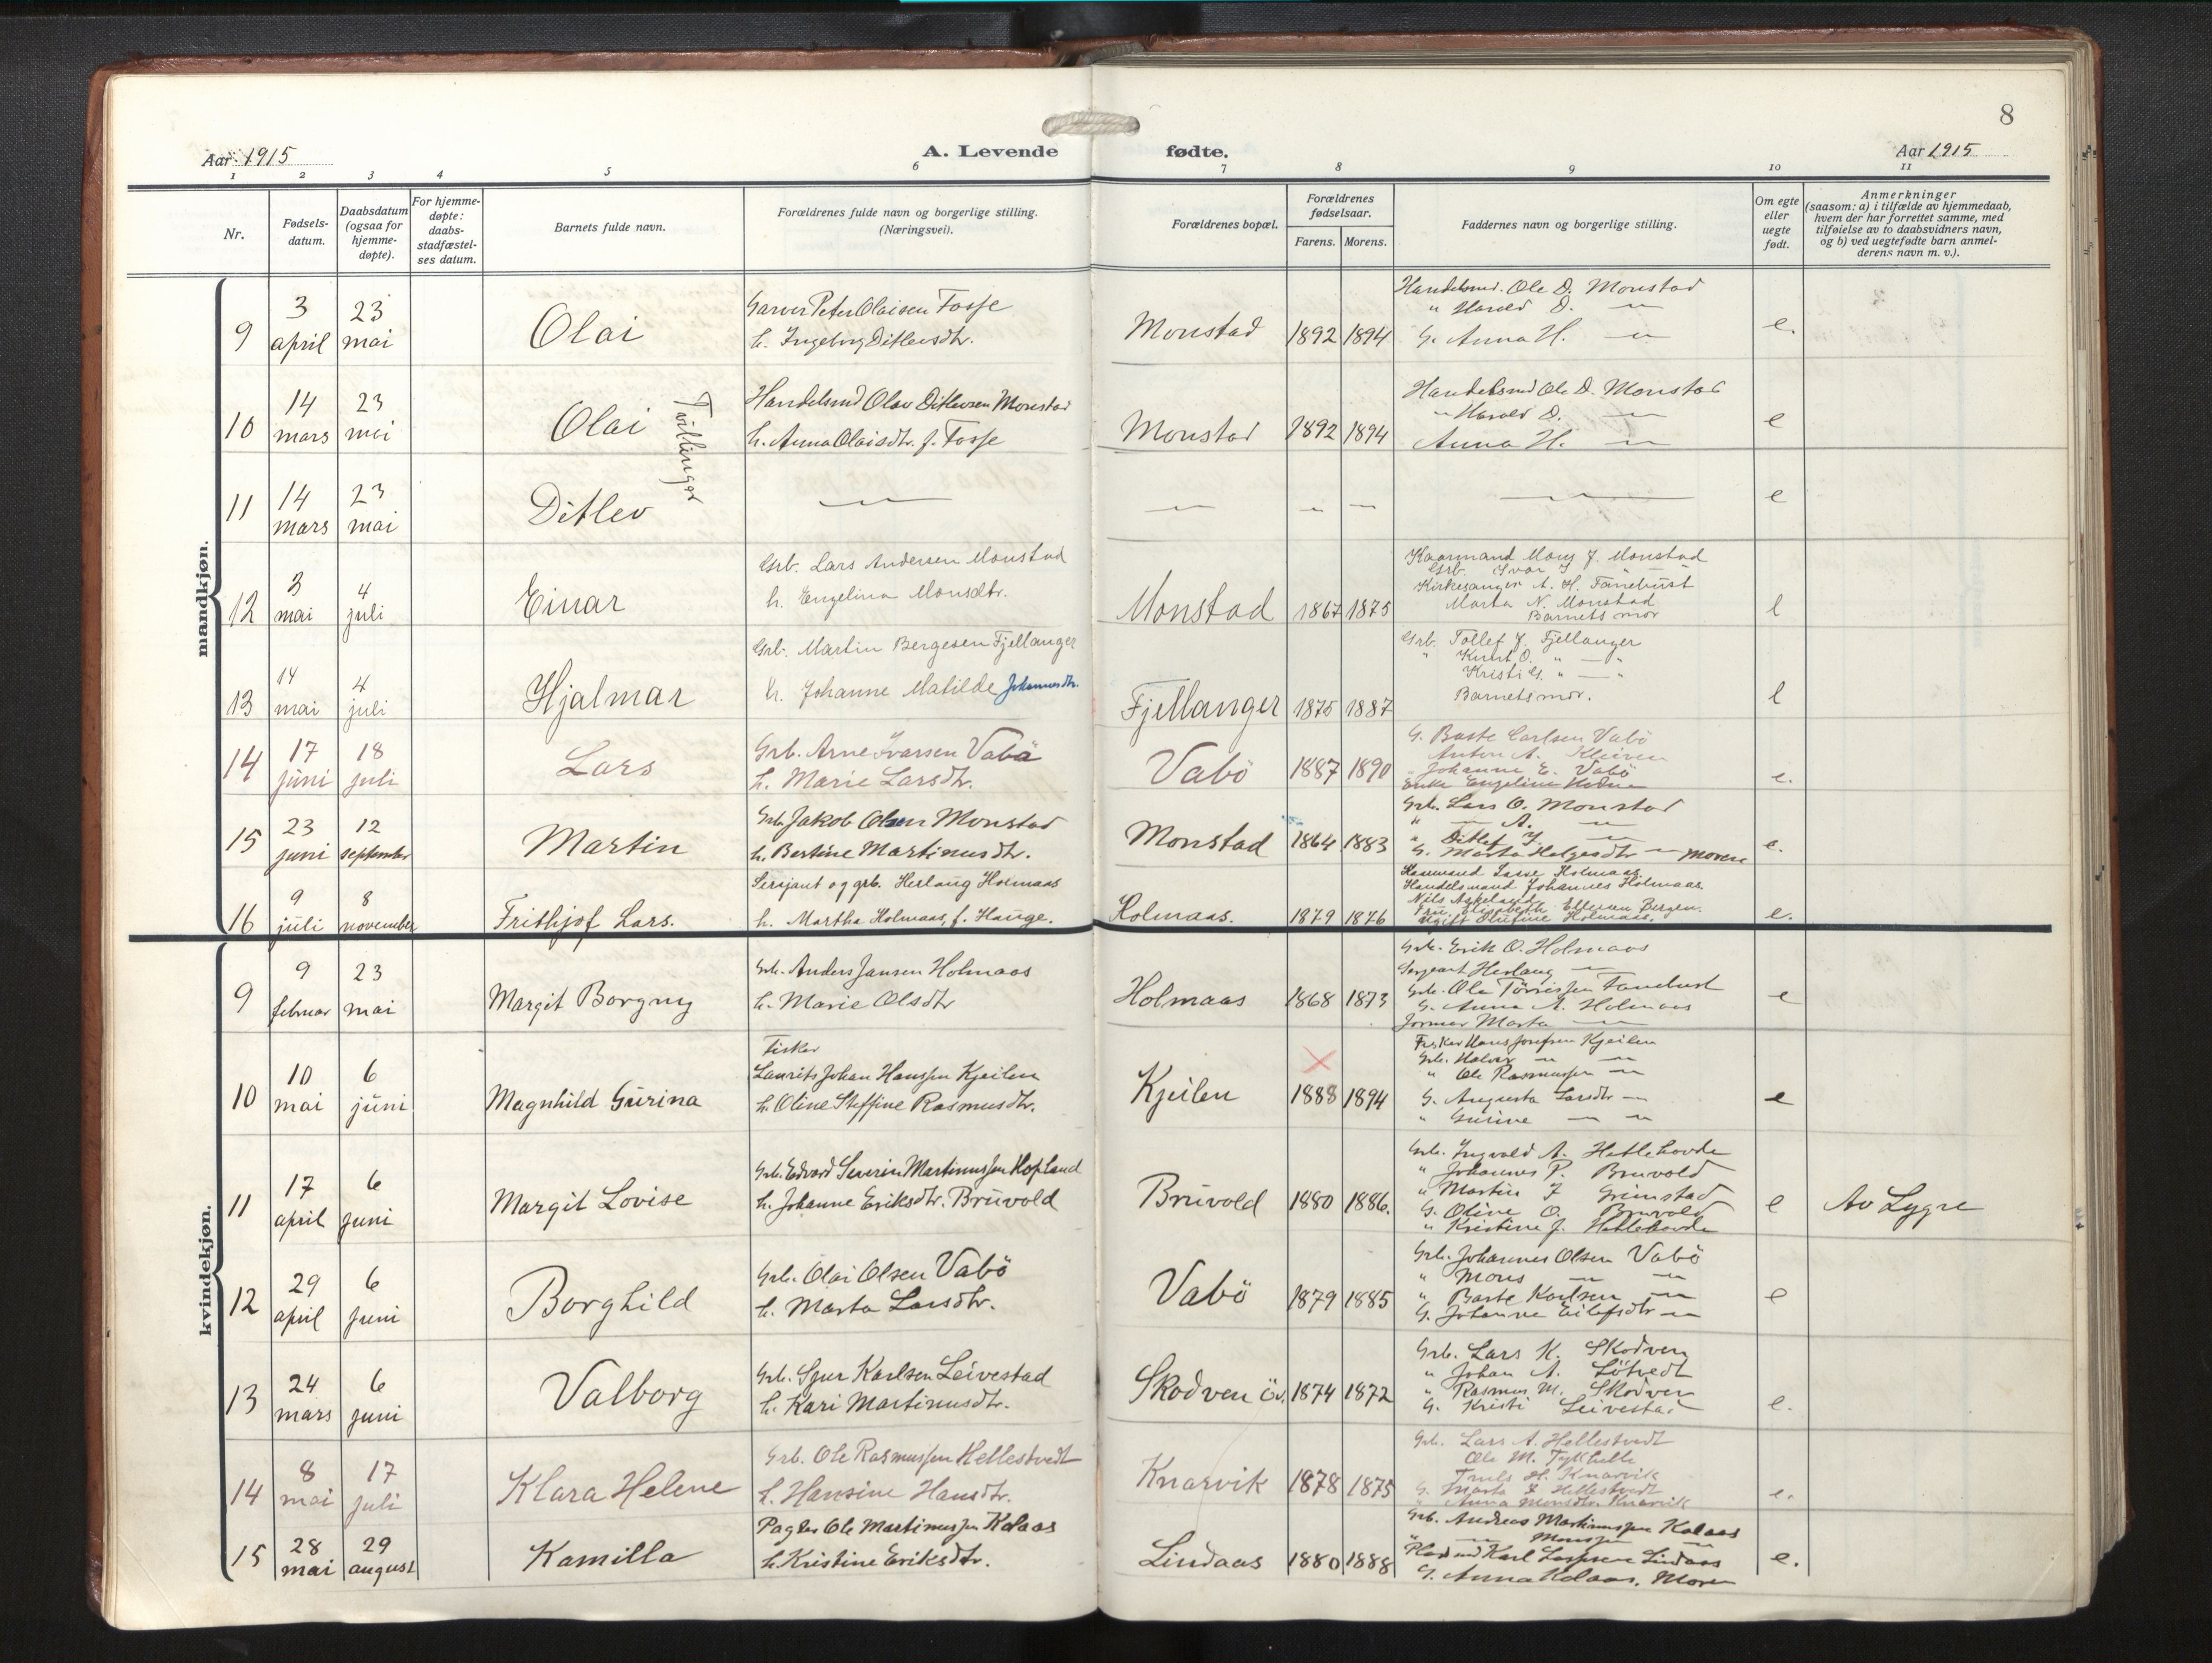 8
Aar 1915
A. Levende fødte.
Aar 1915
1 2 3 4 5 6 7 8 9 10 11
Nr.
Fødsels-
datum.
Daabsdatum
(ogsaa for
hjemme-
døpte).
For hjemme-
døpte:
daabs-
stadfæstel-
ses datum.
Barnets fulde navn.
Forældrenes fulde navn og borgerlige stilling.
(Næringsvei).
Forældrenes bopæl.
Forældrenes
fødselsaar.
Farens. Morens.
Faddernes navn og borgerlige stilling.
Om egte
eller
uegte
født.
Anmerkninger
(saasom: a) i tilfælde av hjemmedaab,
hvem der har forrettet samme, med
tilføielse av to daabsvidners navn,
og b) ved uegtefødte barn anmel-
derens navn m. v.).
mandkjøn.
9
3 april
23 mai
Olai
Garver Peter Olaisen Fosse
h. Ingeborg Ditlevsdtr.
Monstad
1892 1894
Handelsmd. Ole D. Monstad
" Harald D. —
G. Anna H. —
e.
10
14 mars
23 mai
Olai
Tvillinger
Handelsmd Olav Ditlevsen Monstad
h. Anna Olaisdtr. f. Fosse
Monstad
1892 1894
Handelsmd Ole D. Monstad
" Harald D. —
Anna H. —
e
11
14 mars
23 mai
Ditlev
—
— — —
—
e
12
3 mai
4 juli
Einar
Grb. Lars Andersen Monstad
h. Engelina Monsdtr.
Monstad
1867 1875
Kaarmand Mons J. Monstad
Grb. Ivar J. " — "
Kirkesanger A. H. Fanebust
Marta N. Monstad
Barnets mor
e
13
14 mai
4 juli
Hjalmar
Grb. Martin Bergesen Fjellanger
h. Johanne Matilde Johannesdtr.
Fjellanger
1875 1887
Grb. Tollef J. Fjellanger
" Knut O. " — "
Kristi " — "
Barnets mor.
e
14
17 juni
18 juli
Lars
Grb. Arne Ivarsen Vabö
h. Marie Larsdtr.
Vabö
1887 1890
G. Baste Carlsen Vabö
Anton A. Kleiven
" Johanne E. Vabö
Enke Engeline
e.
15
23 juni
12 september
Martin
Grb Jakob Olsen Monstad
h. Bertine Martinusdtr.
Monstad
1864 1883
Grb. Lars O. Monstad
" — A. —
" Ditlef J. —
G. Marta Helgesdtr — Moren
e.
16
9 juli
8 november
Frithjof Lars.
Sersjant og grb. Herlaug Holmaas
h. Martha Holmaas, f. Hauge.
Holmaas.
1879 1876
Kaarmand Lasse Holmaas.
Handelsmand Johannes Holmaas.
Nils Askeland
Fru Elisabeth Ellersen Bergen.
Ugift Olufine Holmaas.
e.
kvindekjøn.
9
9 februar
23 mai
Margit Borgny
Grb. Anders Jansen Holmaas
h. Marie Olsdtr
Holmaas
1868 1873
Grb. Erik O. Holmaas
Sergeant Herlaug —
Grb. Ole Törrissen Fanebust
G. Anna A. Holmaas
Jormor Marta —
e
10
10 mai
6 juni
Magnhild Gurina
Fisker
Laurits Johan Hanssen Kjeilen
h. Oline Steffine Rasmusdtr.
Kjeilen
1888 1894
Fisker Hans Josefsen Kjeilen
Grb. Halvor — —
" Ole Rasmussen —
G. Augusta Larsdtr —
" Gurine — —
e
11
17 april
6 juni
Margit Lovise
Grb. Edvard Severin Martinussen Hopland
h. Johanne Eriksdtr. Bruvold
Bruvold
1880 1886.
Grb. Ingvald A. Hetlehovde
" Johannes P. Bruvold
" Martin J Grimstad
G. Oline O. Bruvold
" Kristine J. Hetlehovde
e
Av Lygre
12
29 april
6 juni
Borghild
Grb. Olai Olsen Vabö
h. Marta Larsdtr.
Vabö
1879 1885
Grb. Johannes Olsen Vabö
" Mons — —
" Baste Karlsen —
G. Johanne Eilefsdtr —
e
13
24 mars
6 juni
Valborg
Grb. Sjur Karlsen Leivestad
h. Kari Martinusdtr.
Skodven öv.
1874 1872
Grb. Lars K. Skodven
" Johan A. Lötvedt
" Rasmus M. Skodven
G. Kristi Leivestad
e.
14
8 mai
17 juli
Klara Helene
Grb. Ole Rasmussen Hellestvedt
h. Hansine Hansdtr.
Knarvik
1878 1875
Grb. Lars A. Hellestvedt
Ole M.
Truls H. Knarvik
G. Marta Hellestvedt
" Anna Monsdtr. Knarvik
e.
15
28 mai
29 august
Kamilla
Pagter Ole Martinussen Kolaas
h. Kristine Eriksdtr.
Lindaas
1880 1888
Grb. Andreas Martinussen Kolaas
" — Monssen —
Pladsmd Karl Larssen Lindaas
G. Anna Kolaas. Moren
e.